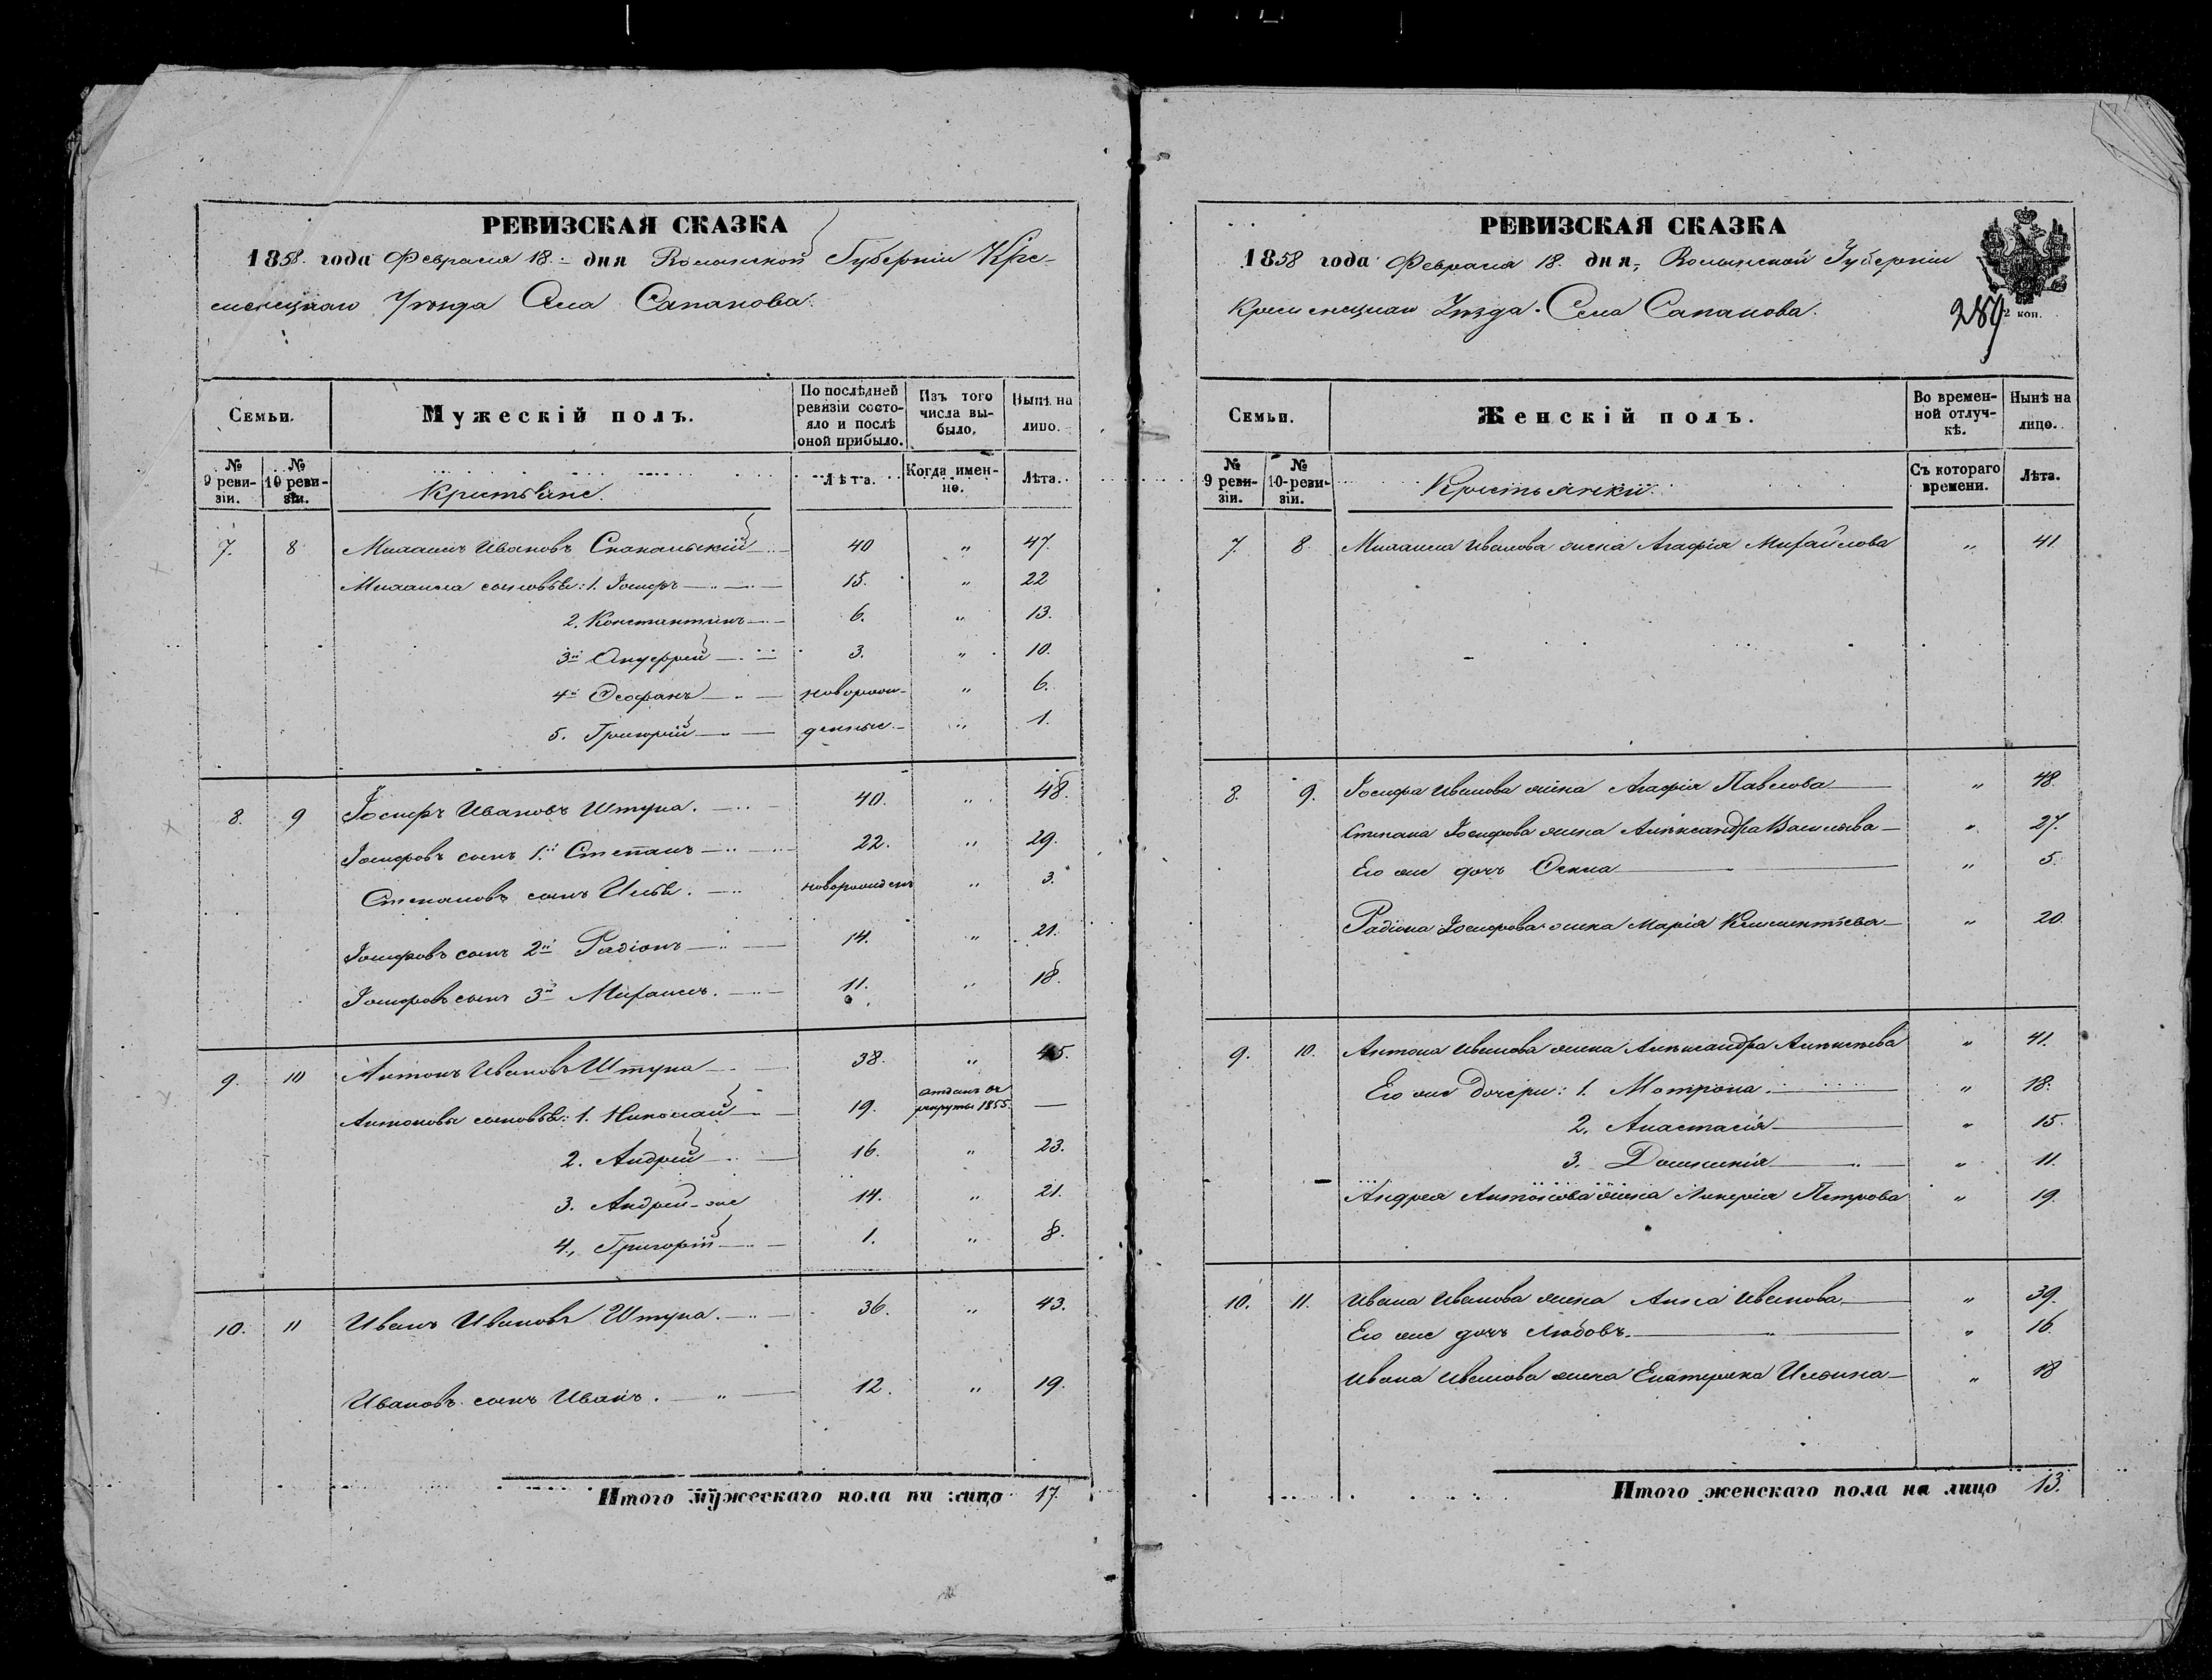 РЕВИЗСКАЯ СКАЗКА
1858. года Февраля 18. дня Волынской Губерніи Кре-
менецкаго Уѣзда Села Сапанова.
Семьи.
Мужескій полъ.
По послѣдней ревизіи состо-яло и послѣ оной прибыло.
Изъ того числа вы-было.
Нынѣ на лицо.
№ 9 реви-зіи.
№ 10 реви-зіи.
Крестьяне.
Лѣта.
Когда имен-но.
Лѣта.
7. 8 Ивановъ 40 " 47.
сыновья: 1. Іосифъ 15. " 22
2. Константинъ 6. " 13.
3й Онуфрей 3. " 10.
4й Ѳеофанъ новорож- " 6.
5. Григорій денные " 1.
8. 9 Іосифъ Ивановъ Штука. 40. " 48.
Іосифовъ сынъ 1й Степанъ 22. " 29.
Степановъ сынъ Илья. новорожденъ " 3.
Іосифовъ сынъ 2й Радіонъ 14. " 21.
Іосифовъ сынъ 3й Михаилъ. 11. " 18.
9. 10 Антонъ Ивановъ Штука 38. " 45.
Антоновы сыновья: 1. Николай 19. отданъ въ рекруты 1855. —
2. Андрей 16. " 23.
3. Андрей-же 14. " 21.
4., Григорій 1. " 8.
10. 11 Иванъ Ивановъ Штука. 36. " 43.
Ивановъ сынъ Иванъ. 12. " 19.
Итого мужескаго пола на лицо 17.
РЕВИЗСКАЯ СКАЗКА
1858 года Февраля 18. дня, Волынской Губерніи
Кременецкаго Уѣзда. Села Сапанова.
289
2 коп.
Семьи.
Женскій полъ.
Во времен-ной отлуч-кѣ.
Нынѣ на лицо.
№ 9 реви-зіи.
№ 10-реви-зіи.
Крестьянки.
Съ котораго времени.
Лѣта.
7. 8. Иванова жена Агафія Михайлова " 41.
8. 9. Іосифа Иванова жена Агафія Павлова " 48.
Степана Іосифова жена Александра Васильева " 27.
Его же дочь " 5.
Радіона Іосифова жена Марія Климентьева " 20
9. 10. Антона Иванова жена Александра Алексѣева " 41.
Его же дочери: 1. Мотрона. " 18.
2. Анастасія " 15.
3. Домникія " 11.
Андрея Антонова жена Петрова " 19.
10. 11. Ивана Иванова жена Анна Иванова " 39.
Его же дочь Любовь. " 16.
Ивана Иванова жена Екатерина Ильина " 18
Итого женскаго пола на лицо 13.